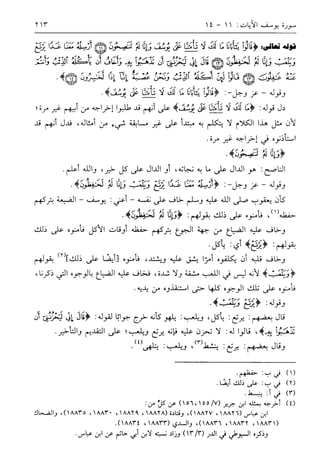 سورة يوسف الآيات: ١١ - ١٤ ٢١٣
قوله تعالى: ﴿قَالُوا يَا أَبَانَا مَا لَكَ لَا تَأْمَنَّا عَلَى يُوسُفَ وَإِنَّا لَهُ لَنَاصِحُونَ أَرْسِلْهُ مَعَنَا غَدًا يَرْتَعْ
وَيَلْعَبْ وَإِنَّا لَهُ لَحَافِظُونَ قَالَ إِنِّي لَيَحْزُنُنِي أَنْ تَذْهَبُوا بِهِ وَأَخَافُ أَنْ يَأْكُلَهُ الذِّئْبُ وَأَنْتُمْ
عَنْهُ غَافِلُونَ قَالُوا لَئِنْ أَكَلَهُ الذِّئْبُ وَنَحْنُ عُصْبَةٌ إِنَّا إِذًا لَخَاسِرُونَ﴾.
وقوله - عز وجل -: ﴿قَالُوا يَا أَبَانَا مَا لَكَ لَا تَأْمَنَّا عَلَى يُوسُفَ وَإِنَّا لَهُ لَنَاصِحُونَ﴾.
دل قوله: ﴿مَا لَكَ لَا تَأْمَنَّا عَلَى يُوسُفَ﴾ على أنهم قد طلبوا إخراجه من أبيهم غير مرة؛
لأن مثل هذا الكلام لا يتكلم به مبتدأ على غير مسابقة شيء من أمثاله، فدل أنهم قد
استأذنوه في إخراجه غير مرة.
﴿وَإِنَّا لَهُ لَنَاصِحُونَ﴾.
الناصح: هو الدال على ما به نجاته، أو الدال على كل خير، والله أعلم.
وقوله - عز وجل -: ﴿أَرْسِلْهُ مَعَنَا غَدًا يَرْتَعْ وَيَلْعَبْ وَإِنَّا لَهُ لَحَافِظُونَ﴾.
كأن يعقوب صلى الله عليه وسلم خاف على نفسه - أعني: يوسف - الضيعة بتركهم
حفظه(١)، فأمنوه على ذلك بقولهم: ﴿وَإِنَّا لَهُ لَحَافِظُونَ﴾.
وخاف عليه الضياع من جهة الجوع بتركهم حفظه أوقات الأكل فأمنوه على ذلك
بقولهم: ﴿يَرْتَعْ﴾ أي: يأكل.
وخاف قلبه أن يكلفوه أمرًا يشق عليه ويشتد، فأمنوه [أيضًا على ذلك](٢) بقولهم
﴿وَيَلْعَبْ﴾ لأنه ليس في اللعب مشقة ولا شدة، فخاف عليه الضياع بالوجوه التي ذكرنا،
فأمنوه على تلك الوجوه كلها حتى استنقذوه من يديه.
وقوله: ﴿يَرْتَعْ وَيَلْعَبْ﴾.
قال بعضهم: يرتع: يأكل، ويلعب: يلهو كأنه خرج جوابًا لقوله: ﴿قَالَ إِنِّي لَيَحْزُنُنِي أَنْ
تَذْهَبُوا بِهِ﴾، قالوا له: لا تحزن عليه فإنه يرتع ويلعب؛ على التقديم والتأخير.
وقال بعضهم: يرتع: ينشط(٣)، ويلعب: يتلهى(٤).
(١) في ب: حفظهم.
(٢) في ب: على ذلك أيضًا.
(٣) في أ: ينبسط.
(٤) أخرجه بمثله ابن جرير (٧/ ١٥٥، ١٥٦) عن كلٍّ من:
ابن عباس (١٨٨٢٦، ١٨٨٢٧)، وقتادة (١٨٨٢٨، ١٨٨٢٩، ١٨٨٣٠، ١٨٨٣٥)، والضحاك
(١٨٨٣١، ١٨٨٣٢، ١٨٨٣٦)، والسدي (١٨٨٣٣، ١٨٨٣٤).
وذكره السيوطي في الدر (٣/ ١٣) وزاد نسبته لابن أبي حاتم عن ابن عباس.